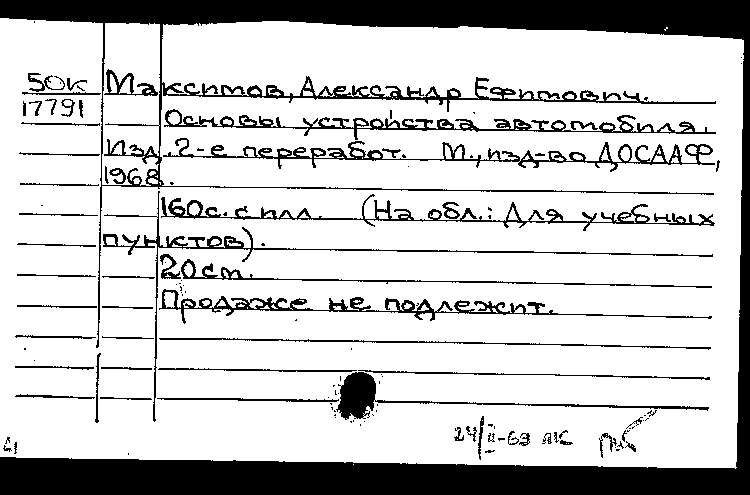 50к Максимов, Александр Ефимович.
17791
Основы устройства автомобиля.
Изд. 2-е переработ. М., изд-во ДОСААФ,
1968.
160с. с илл. (На обл.: Для учебных
пунктов).
20 см.
Продаже не подлежит.
24/II-69 ЛК